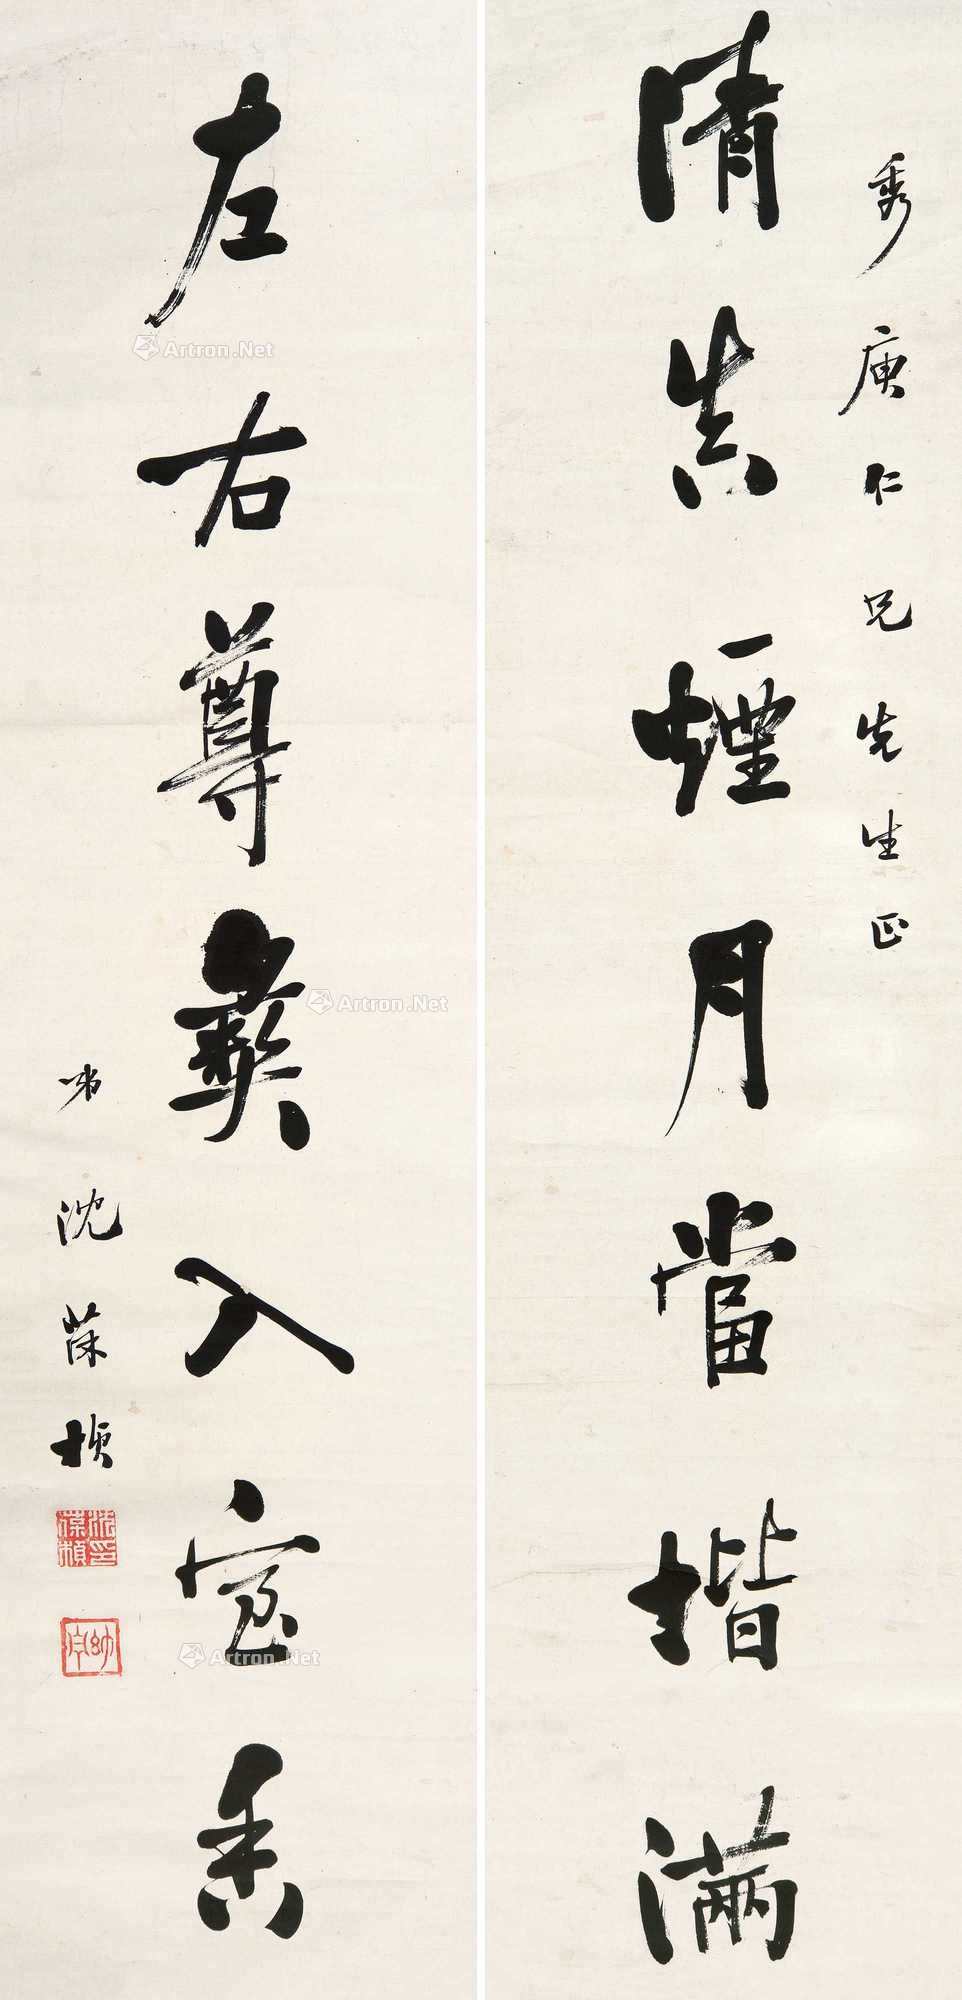 秀庚仁兄先生正
清真煙月當堦滿
左右尊彝入室香
弟沈葆楨
沈葆楨印
幼宗
Artron.Net
Artron.Net
Artron.Net